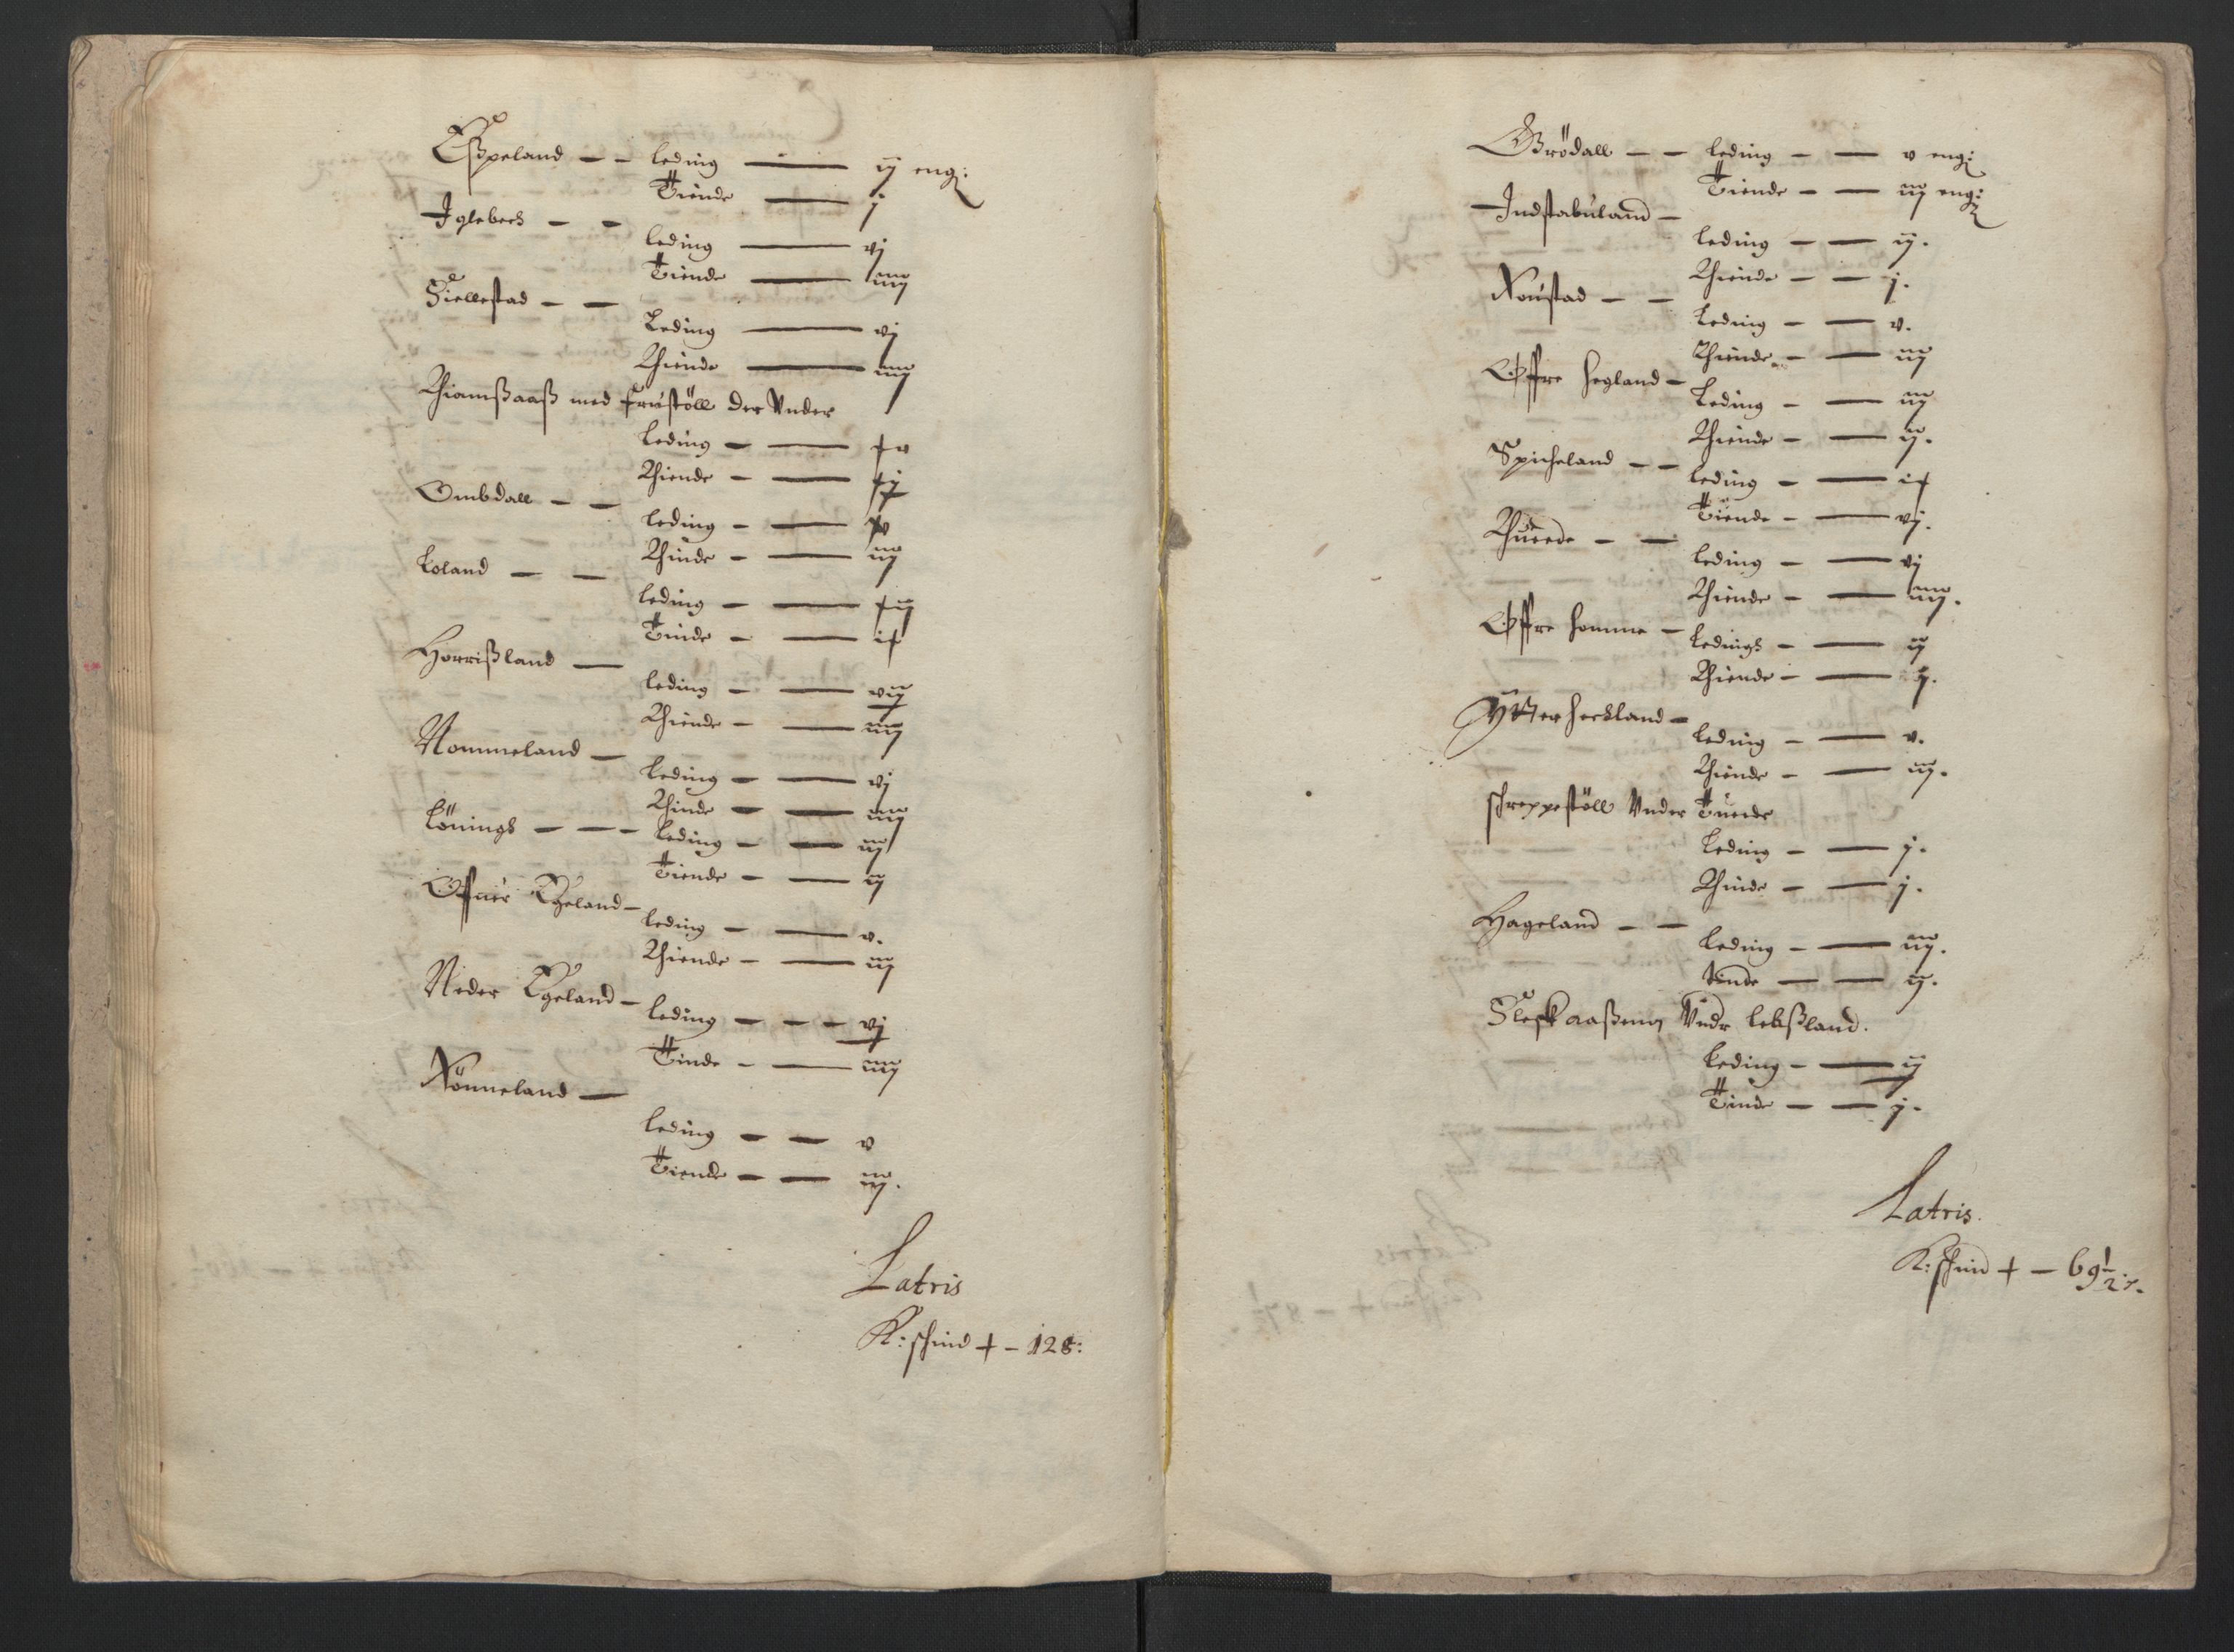 Eßpeland – – leding — ij eng:
Tiende — j
Iglebeck – –
leding — vj
Tiende — iiij
Siellestad – –
Leding — vj
Thiende — iiij
Thiamßaaß med frustöll der Vnder
leding – — xv
Thiende – — xj
Ombdall – –
leding – — xv
Thinde – — iij
Loland – –
leding – — xij
Tinde – — ix
Horrißland —
leding – — vij
Thiende – — iiij
Nommeland —
leding – — vj
Thinde – — iiij
Löningh – – – leding – — iij
Tiende – — ij
Offuer Egeland –
leding – — v.
Thiende – — iij
Neder Egeland –
leding – – – vj
Tinde – — iiij
Rönneland —
leding – – v
Tiende – – iij.
Latris
K: skind + – 128:
Grödall – – leding – — v eng:
Tiende – — iij eng:
Indstabuland –
leding – — ij.
Thiende – — j.
Roustad – –
leding – — v.
Thiende – — iij
Öffre Hegland –
leding – — iij
Thiende – — ij.
Spicheland – –
leding – — ix
Tiende – — vj.
Thuede – –
leding – — vj
Thiende – — iiij.
Öffre homme –
ledingh – — ij
Thiende – — j.
Ytter heckland –
leding – — v.
Thiende – — iij.
schreppestöll Vnder Tuede
leding – — j.
Thinde – — j.
Hageland – –
leding – — iij.
tinde — — ij.
Slefkaaßenn Vnder lekßland.
leding – — ij
Tinde – — j.
Latris.
K: skind + – 69 1/2.